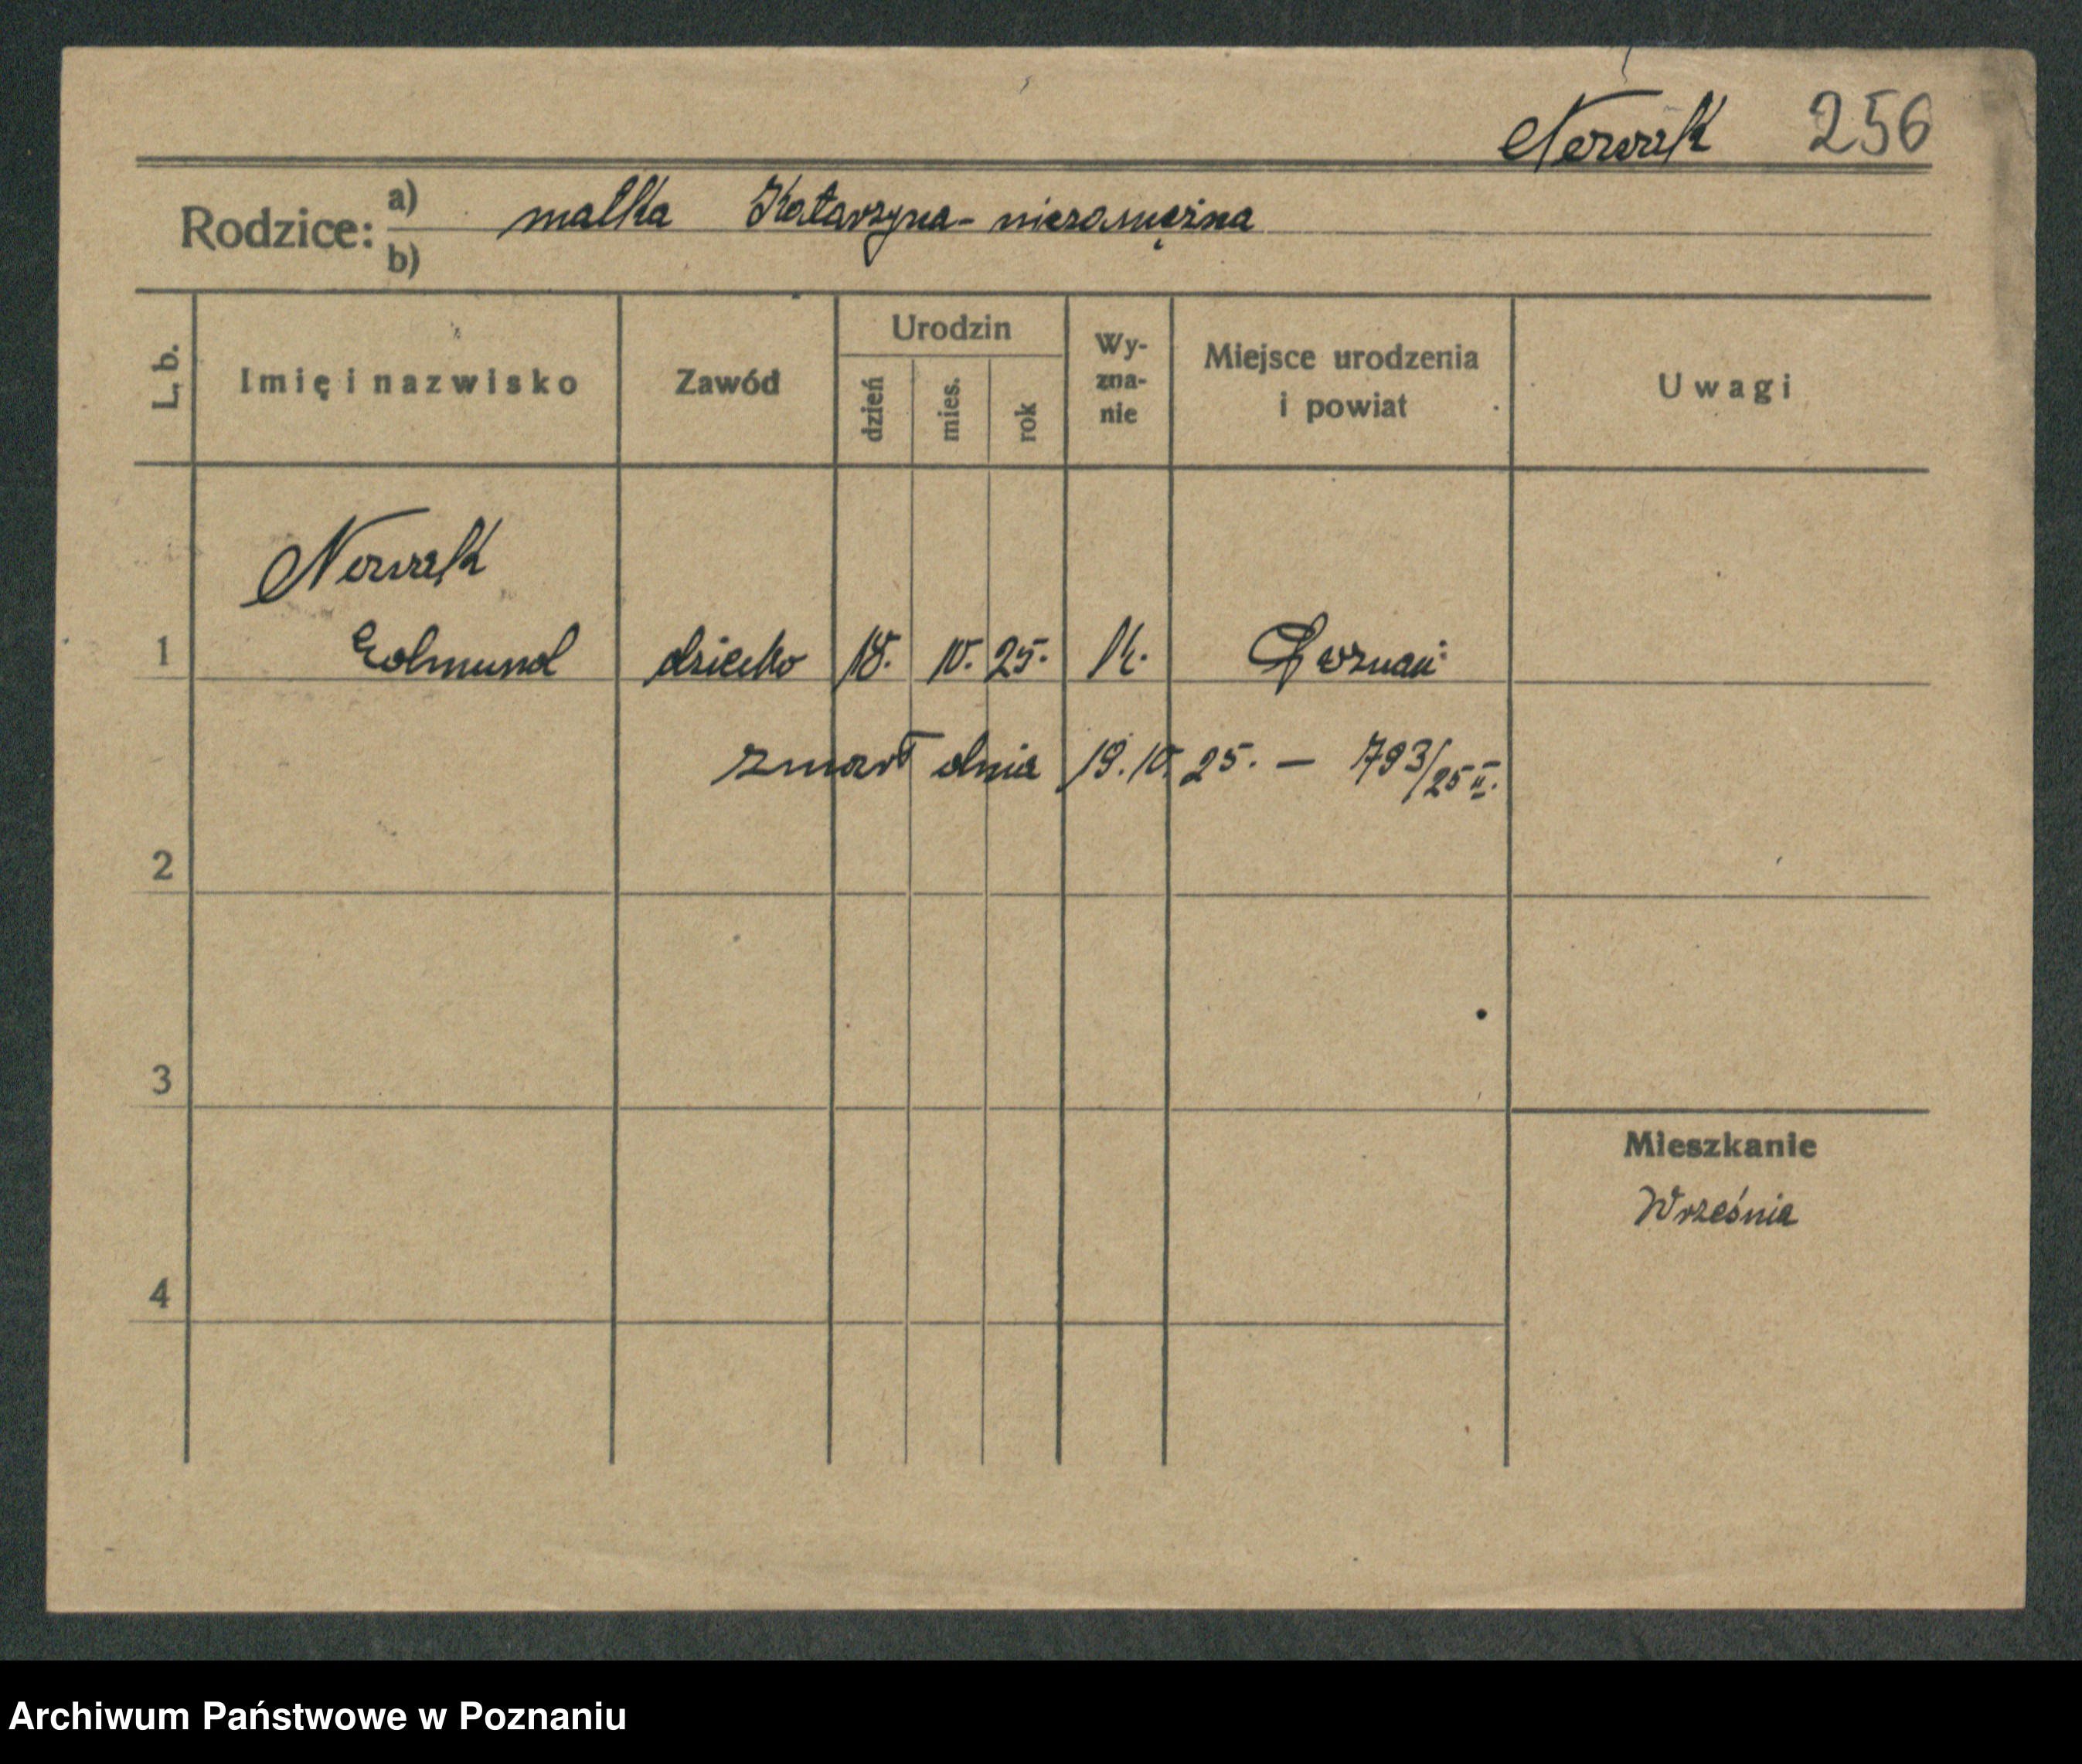 Nowak 256
Rodzice: a) matka Katarzyna - niezamężna
b)
L. b. Imię i nazwisko Zawód Urodzin dzień mies. rok Wy-zna-nie Miejsce urodzenia i powiat Uwagi
Nowak
1 Edmund dziecko 18. 10. 25. k. Poznań
zmarł dnia 19.10.25. — 793/25 II.
2
3
Mieszkanie
Września
4
Archiwum Państwowe w Poznaniu